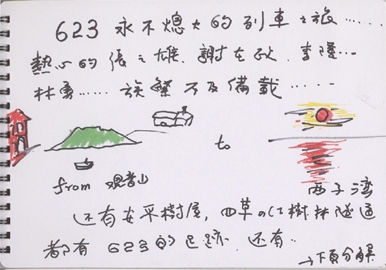 623 永不熄火的列車之旅……
熱心的張之雄、謝左欽、李隆…
林勇…… 族繁不及備載……
to
from 觀音山
西子灣
還有安平樹屋，四草の紅樹林隧道
都有 623的足跡，還有..
→下頁分解